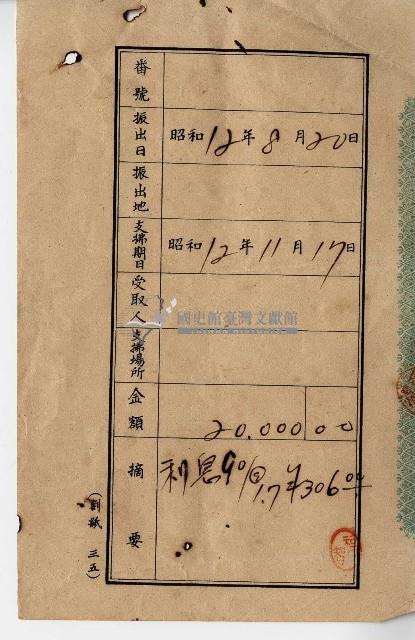 番號
振出日 昭和12年8月20日
振出地
支拂期日 昭和12年11月17日
受取人
支拂場所
金額 20.000 00
摘要 利息90/日 1.7 306.00
國史館臺灣文獻館
(割紙 三五)